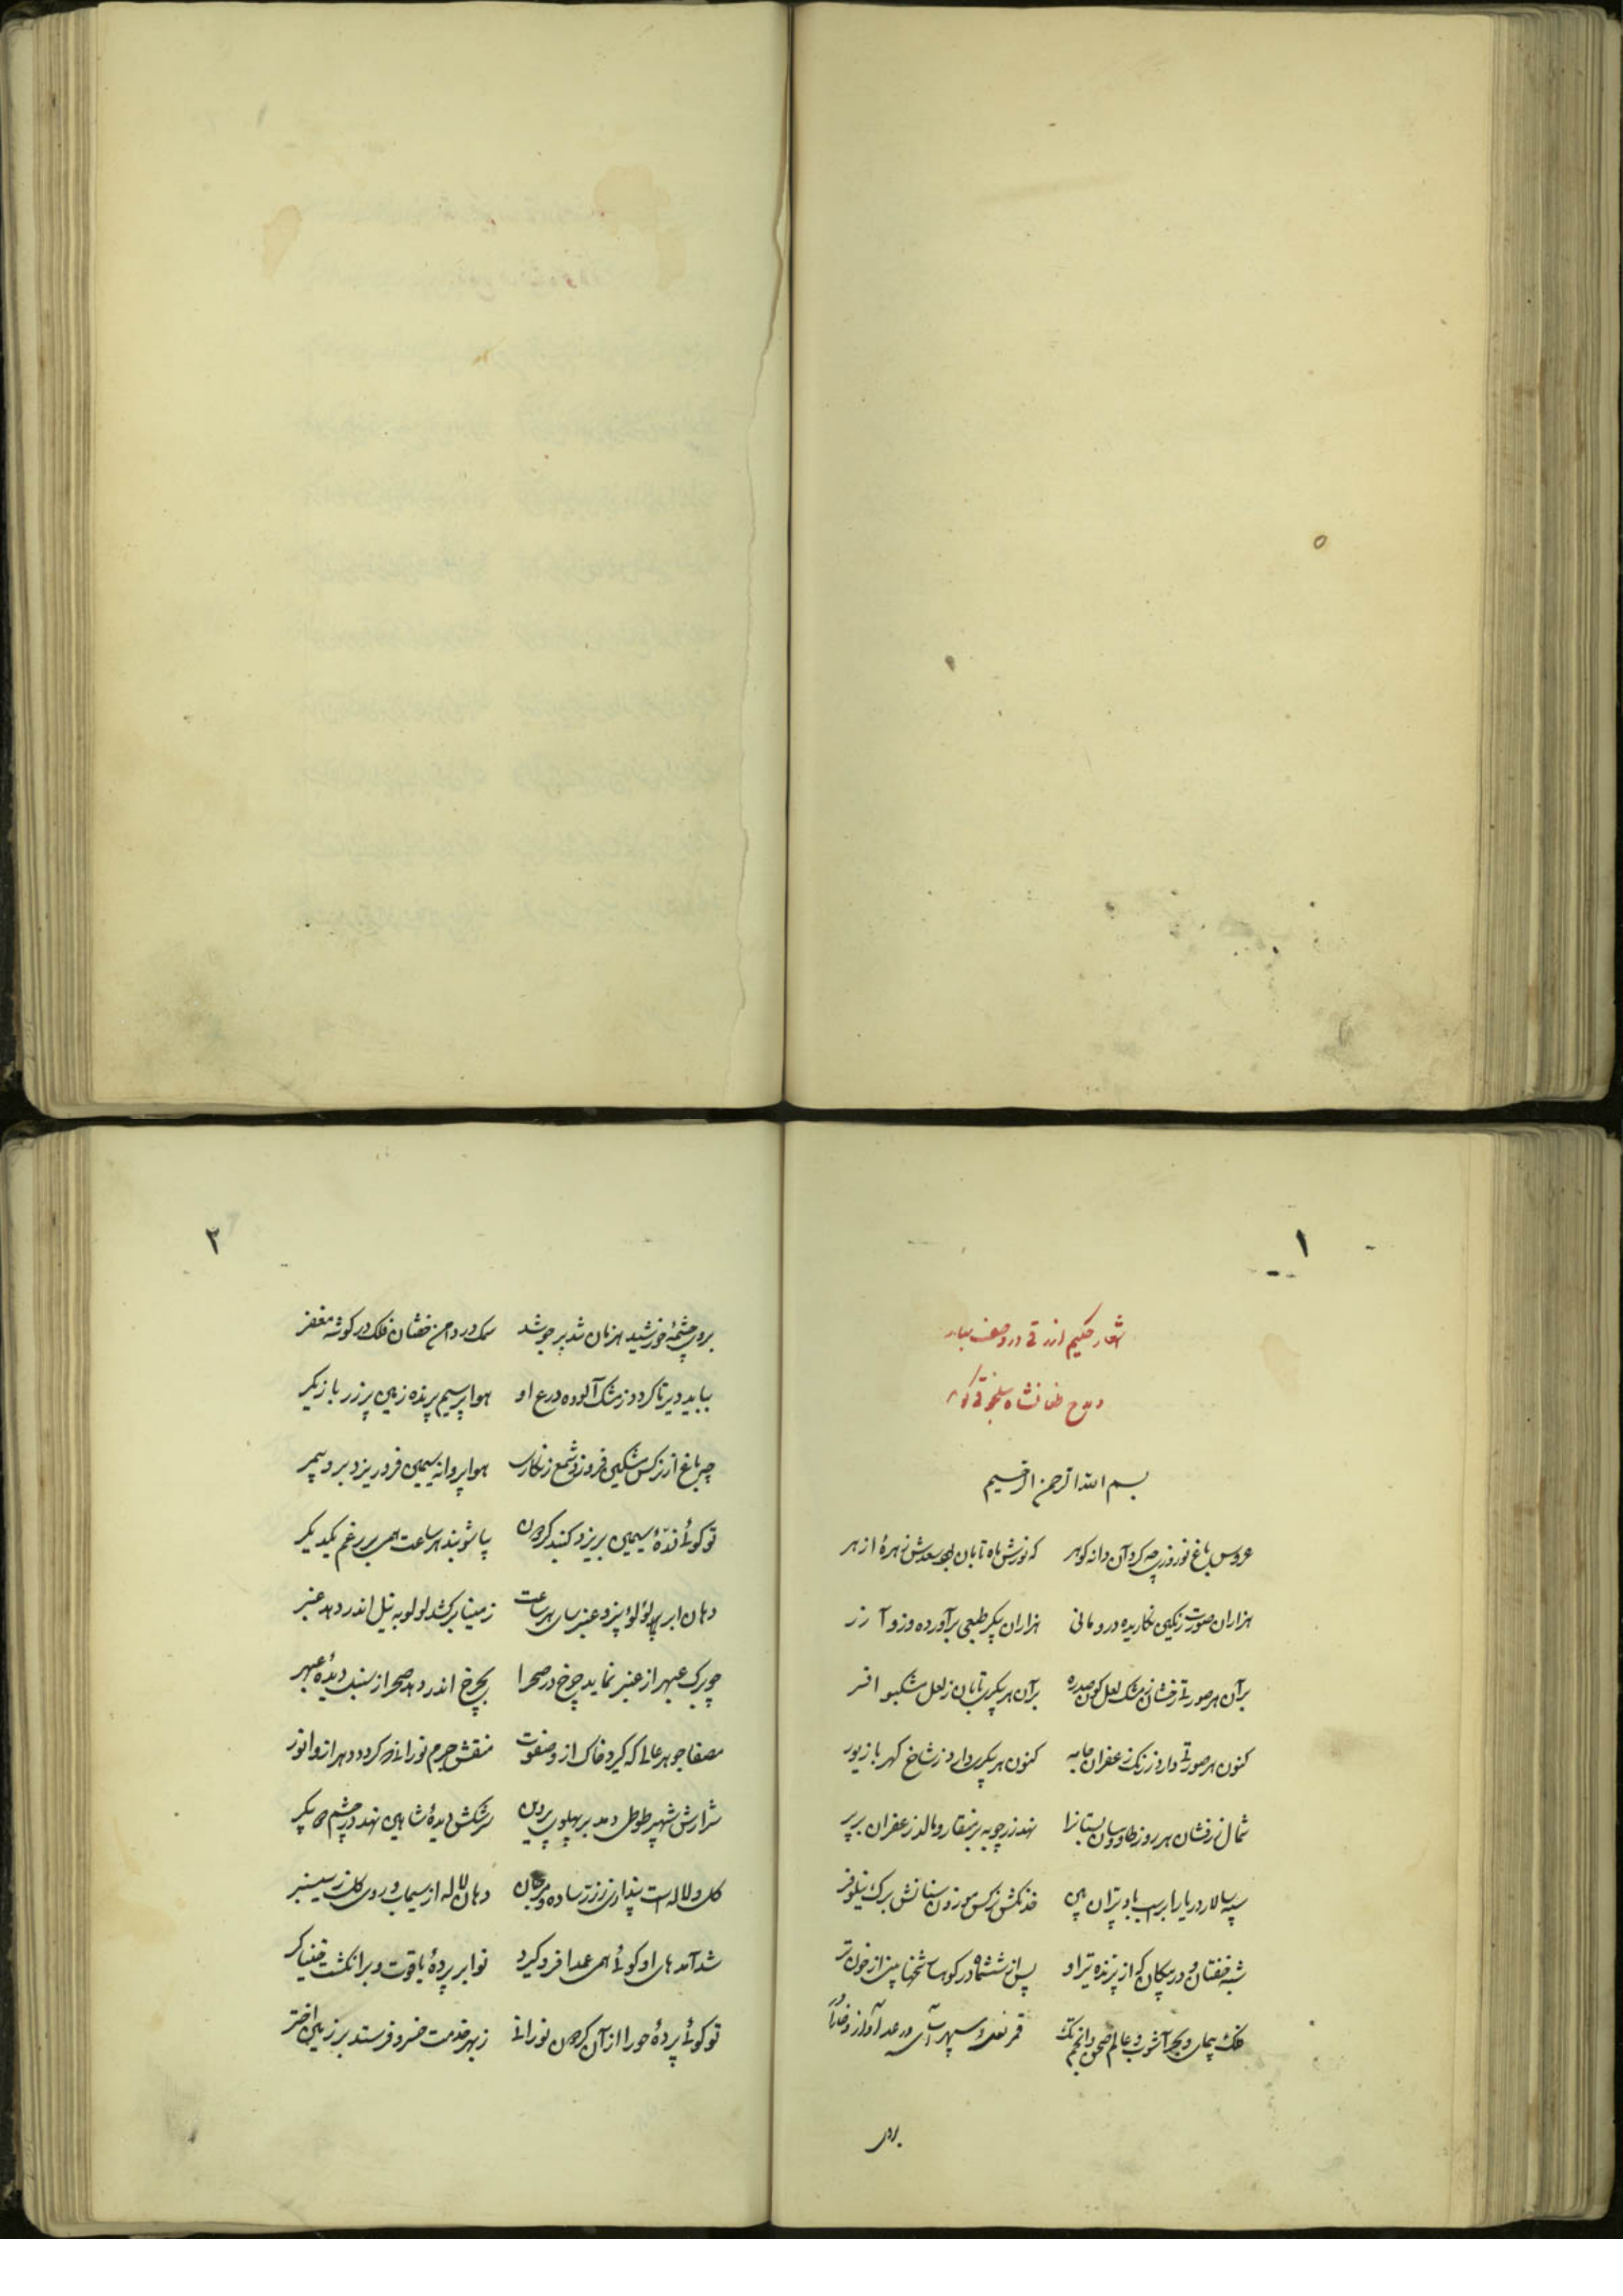 ۱
اشعار حکیم ازرقی در وصف بهار
و مدح طغانشاه سلجوقی گوید
بسم الله الرحمن الرحیم
عروس باغ نوروزی چه کرد آن دانه گوهر که نورش ماه تابان بود سعدش زهرهٔ ازهر
هزاران صورت رنگین نگاریده درو مانی هزاران پیکر طبعی برآورده درو آزر
بر آن هر صورتی رخشان ز مشک لعل گون صدره بر آن هر پیکری تابان ز لعل مشکبو افسر
کنون هر صورتی دارد ز رنگ زعفران جامه کنون هر پیکری دارد ز شاخ کهربا زیور
شمال زرفشان هر روز طاووسان بستانرا نهد زرچوبه بر منقار و مالد زعفران بر پر
سپه سالار دریا را بر اسب باد پران بین خدنگش نرگس موزون سنانش برگ نیلوفر
شبه خفتان و در پیکان که از پرنده تیر او پس از شش ماه در کوهسار شخها بینی از خون تر
فلک پیمای و بحر آشوب و عالم صحن و انجم تک قمر نعل و سپهر آسای و رعد آواز و خارا در
بروی
۲
بروی چشمهٔ خورشید هزمان شد بر جوشد سمک در دامن خفتان فلک در گوشهٔ مغفر
بباید دیر تا گردد ز مشک آلوده درع او هوا پر سیم پرنده زمین پر زر بازیگر
چو باغ از نرگس مشکین فروزد شمع زنگاری هوا پروانه سیمین فرو ریزد برو بیمر
تو گوئی ندهٔ سیمین بریزد گنبد گردون پاشویند هر ساعت همی بر رغم یکدیگر
دهان ابر لؤلؤ ریزد عنبرسای هر ساعت ز مینا برکشد لولو به نیل اندر دهد عنبر
چو برگ عبهر از عنبر نماید چرخ در صحرا بچرخ اندر دهد صحرا ز سنبل دیدهٔ عبهر
مصفا جوهر عالی که گیرد خاک ازو صفوت منقش جرم نورانی که گردد دهر ازو انور
شرارش شهپر طوطی دمد بر پهلوی پروین سرشکش دیدهٔ شاهین نهد در چشم دو پیکر
گل و لاله است پنداری ز زر ساده و مرجان دهان لاله از سیماب و روی گل ز سیسنبر
شد آمدهای او گوئی همی عمدا فرو گیرد نوا بر پردهٔ یاقوت و بر انگشت خنیاگر
تو گوئی پردهٔ حورا از آن گردون نورانی ز بهر خدمت خسرو فرستد بر زمین اختر